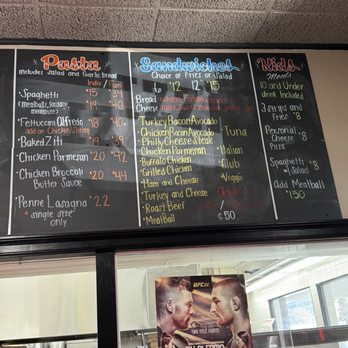 Pasta
includes Salad and Garlic bread
Indiv / Fam
Spaghetti $15 $39
(Meatballs, sausage $19 $40
Fettuccini Alfredo $18 $40
add on Chicken/Shrimp
Baked Ziti $19 $39
Chicken Parmesan $20 $42
Chicken Broccoli $20 $44
Butter Sauce
Penne Lasagna $22
* single size
only
Sandwiches
Choice of Fries or Salad
6 $12 12 $15
Bread
Cheese
Turkey Bacon Avocado
Chicken Bacon Avocado
Philly Cheese Steak
Chicken Parmesan
Buffalo Chicken
Grilled Chicken
Ham and Cheese
Turkey and Cheese
Roast Beef
Meatball
Tuna
Italian
Club
Veggie
¢50
Kids
Meals
10 and Under
drink Included
3 strips and
Fries $8
Personal
Cheese $8
Pizza
Spaghetti $8
& Salad
Add Meatball
$1.50
UFC
TWO TITLE FIGHTS